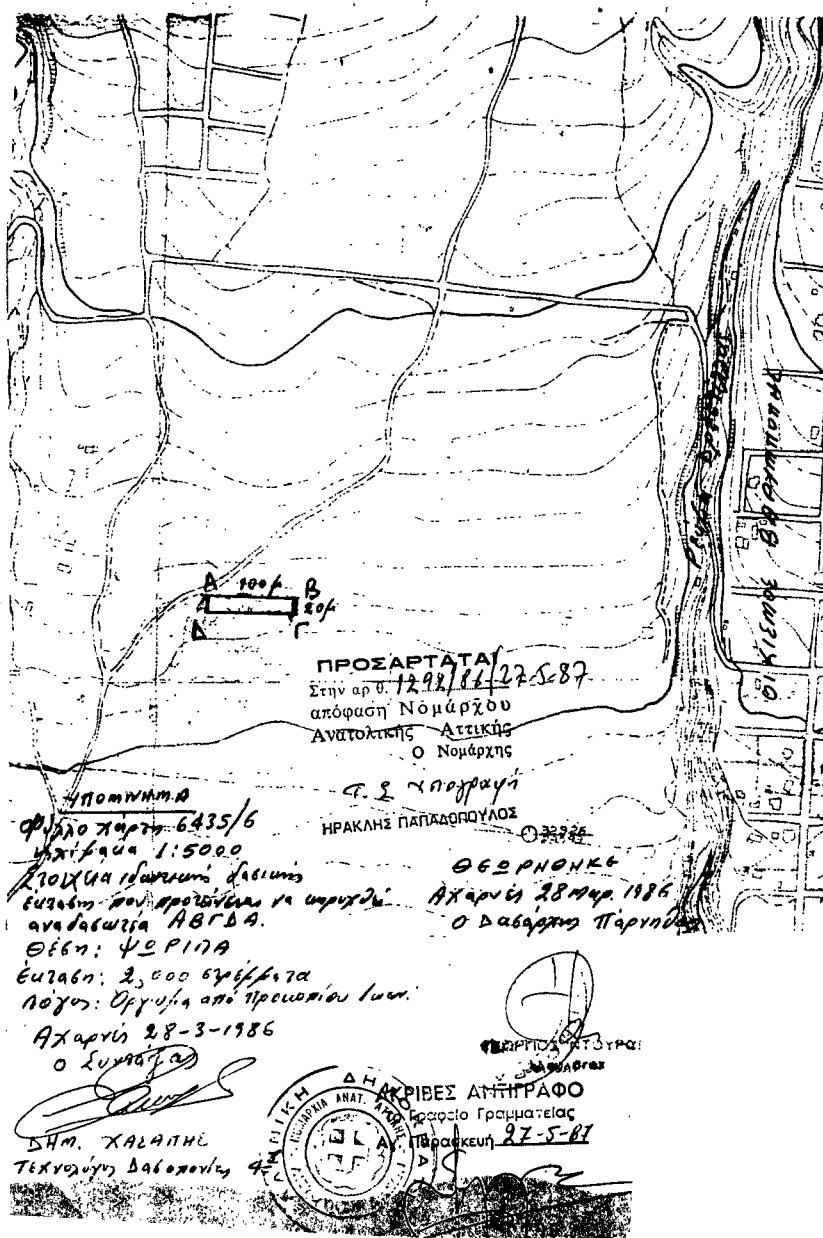 Α 100μ Β
20μ
Δ Γ
Ρεῦμα
ΟΙΚΙΣΜΟΣ ΒΑΡΥΜΠΟΜΠΗΣ
ΠΡΟΣΑΡΤΑΤΑΙ
Στην αρ θ. 1292/86/27-5-87
απόφαση Νομάρχου
Ανατολικής Αττικής
Ο Νομάρχης
Τ.Σ. Υπογραφή
ΗΡΑΚΛΗΣ ΠΑΠΑΔΟΠΟΥΛΟΣ
ΥΠΟΜΝΗΜΑ
Φύλλο χάρτη 6435/6
κλίμακα 1:5000
Στοιχεία ιδιωτικής δασικής
έκτασης που προτείνεται να κηρυχθεί
αναδασωτέα ΑΒΓΔΑ.
Θέση: ΨΩΡΙΠΑ
Έκταση: 2,000 στρέμματα
Λόγος: Όργωμα από Προκοπίου Ιωαν.
Αχαρνές 28-3-1986
Ο Συντάξας
ΔΗΜ. ΧΑΛΑΠΗΣ
Τεχνολόγος Δασοπονίας
ΘΕΩΡΗΘΗΚΕ
Αχαρνές 28 Μαρ. 1986
Ο Δασάρχης Πάρνηθας
ΓΕΩΡΓΙΟΣ ΝΤΟΥΡΟΣ
ΑΚΡΙΒΕΣ ΑΝΤΙΓΡΑΦΟ
Γραφείο Γραμματείας
Αγ. Παρασκευή 27-5-87
ΝΟΜΑΡΧΙΑ ΑΝΑΤ. ΑΤΤΙΚΗΣ